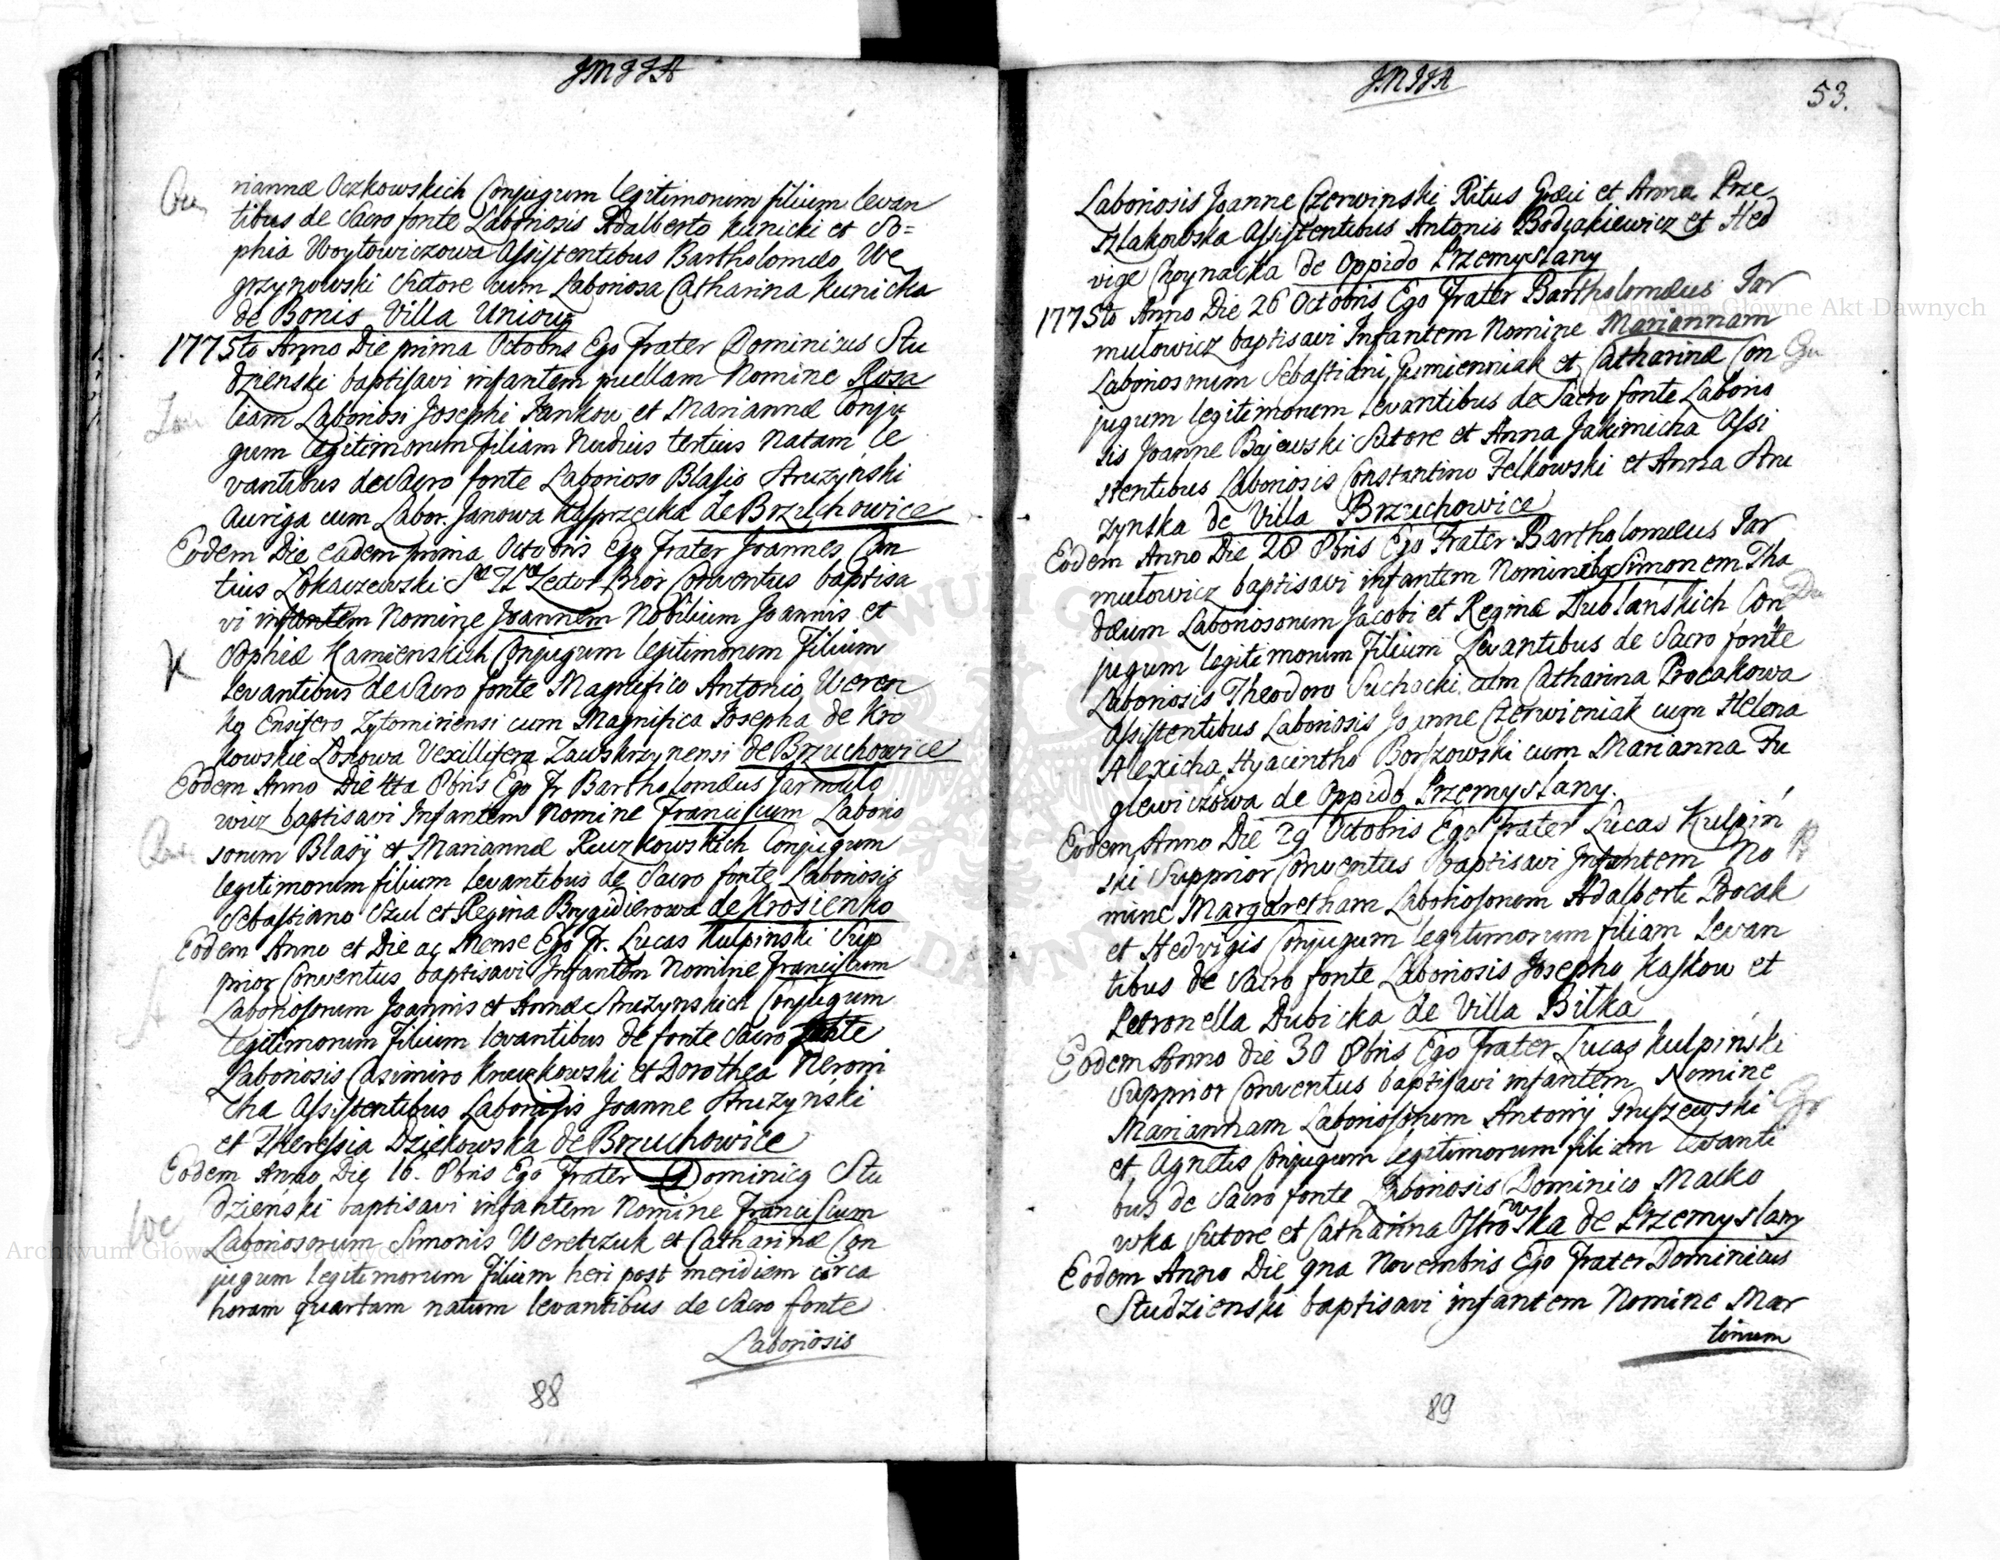 JMJJA
riannæ Oczkowskich Conjugum legitimorum filium levan
tibus de Sacro fonte Laboriosis Adalberto Kunicki et So=
phia Woytowiczowa Assistentibus Bartholomæo We
grzynowski Sutore cum Laboriosa Catharina Kunicka
de Bonis Villa Uniow
1775to Anno Die prima Octobris Ego Frater Dominicus Stu
dzienski baptisavi infantem puellam Nomine Rosa
liam Laboriosi Josephi Jankow et Mariannæ Conju
gum legitimorum Filiam Nudius tertius Natam le
vantibus de Sacro fonte Laborioso Blasio Struzynski
Auriga cum Labor. Janowa Kasprzecka de Brzuchowice
Eodem Die eadem prima Octobris Ego Frater Joannes Can
tius Lokaczewski Lector Prior Conventus baptisa
vi infantem Nomine Joannem Nobilium Joannis et
K
Sophiæ Kamienskich Conjugum legitimorum Filium
levantibus de Sacro fonte Magnifico Antonio Weren
ko Ensifero Zytomiriensi cum Magnifica Josepha de Kro
kowskie Loskowa Vexillifera Zawskrzynensi de Brzuchowice
Eodem Anno Die 4ta 8bris Ego Fr Bartholomæus Jarmulo
wicz baptisavi Infantem Nomine Franciscum Laborio
sorum Blasij et Mariannæ Ruczkowskich Conjugum
legitimorum filium levantibus de Sacro fonte Laboriosis
Sebastiano Szul et Regina Brygidierowa de Krosienko
Eodem Anno et Die ac Mense Ego Fr. Lucas Kulpinski Sup
prior Conventus baptisavi Infantem Nomine Franciscum
Laboriosorum Joannis et Annæ Struzynskich Conjugum
legitimorum Filium levantibus de fonte Sacro
Laboriosis Casimiro Krzuczkowski et Dorothea Nieroni
cha Assistentibus Laboriosis Joanne Struzyński
et Theressia Dziekowska de Brzuchowice
Eodem Anno Die 16. 8bris Ego Frater Dominicg Stu
dzieński baptisavi infantem Nomine Franciscum
Laboriosorum Simonis Weretczuk et Catharinæ Con
jugum legitimorum Filium heri post meridiem circa
horam quartam natum levantibus de Sacro fonte
Laboriosis
88
JMJJA
53.
Laboriosis Joanne Czerwinski Ritus Græci et Anna Prze
szlakowska Assistentibus Antonio Bodzakiewicz et Hed
vige Choynacka de Oppido Przemyslany
1775to Anno Die 26 Octobris Ego Frater Bartholomæus Jar
mulowicz baptisavi Infantem Nomine Mariannam
Laboriosorum Sebastiani Gumienniak et Catharinæ Con
jugum legitimorum levantibus de Sacro fonte Laborio
sis Joanne Bajewski Sutore et Anna Jakimicha Assi
stentibus Laboriosis Constantino Felkowski et Anna Stru
zynska de Villa Brzuchowice
Eodem Anno Die 28 8bris Ego Frater Bartholomæus Jar
mulowicz baptisavi infantem Nominibg Simonem Tha
dæum Laboriosorum Jacobi et Reginæ Dublanskich Con
jugum legitimorum Filium Levantibus de Sacro fonte
Laboriosis Theodoro Suchocki cum Catharina Procakowa
Assistentibus Laboriosis Joanne Czerwieniak cum Helena
Alexicha, Hyacintho Borszowski cum Marianna Fu
glewiczowa de Oppido Przemyslany.
Eodem Anno Die 29 Octobris Ego Frater Lucas Kulpiń
ski Supprior Conventus baptisavi Infantem No
mine Margaretham Laboriosorum Adalberti Procak
et Hedvigis Conjugum legitimorum filiam levan
tibus de Sacro fonte Laboriosis Josepho Kaskow et
Petronella Dubicka de Villa Bilka
Eodem Anno die 30 8bris Ego Frater Lucas Kulpiński
Supprior Conventus baptisavi infantem Nomine
Mariannam Laboriosorum Antonij Pruszewski
et Agnetis Conjugum legitimorum filiam levanti
bus de Sacro fonte Laboriosis Dominico Malko
wka Sutore et Catharina Ostrowska de Przemyslany
Eodem Anno Die 9na Novembris Ego Frater Dominicus
Studzienski baptisavi infantem Nomine Mar
tinum
89
Archiwum Główne Akt Dawnych
Archiwum Główne Akt Dawnych